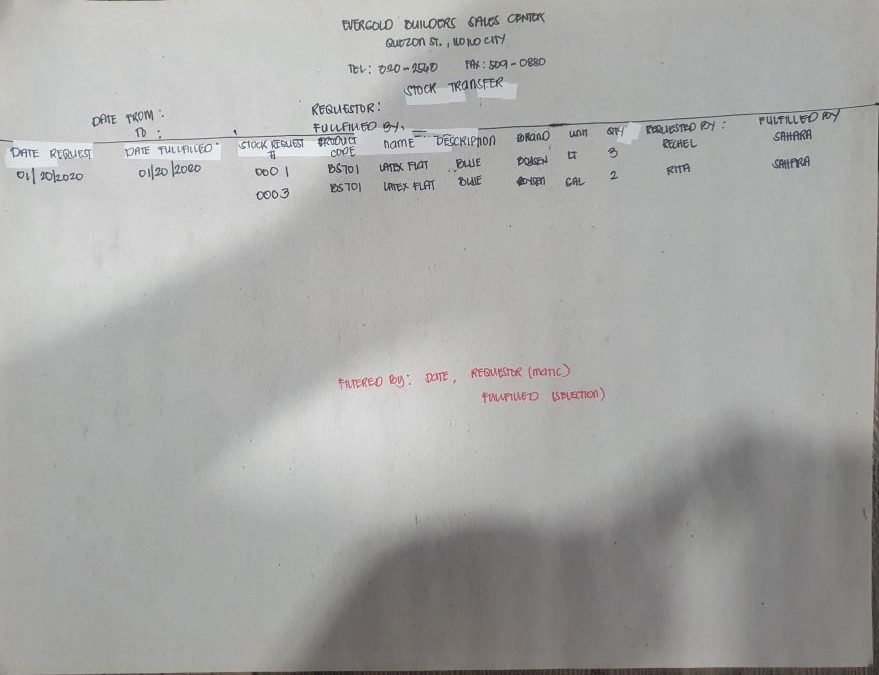 EVERGOLD BUILDERS SALES CENTER
QUEZON ST., ILOILO CITY
TEL: 020-2540 FAX: 509-0880
STOCK TRANSFER
DATE FROM: REQUESTOR:
TO: FULLFILLED BY:
DATE REQUEST DATE FULLFILLED: STOCK REQUEST # PRODUCT CODE NAME DESCRIPTION BRAND UNIT QTY REQUESTED BY: FULFILLED BY
01/20/2020 01/20/2020 0001 BS701 LATEX FLAT BLUE BOYSEN LT 3 RECHEL SAHARA
0003 BS701 LATEX FLAT BLUE BOYSEN GAL 2 RITA SAHARA
FILTERED BY: DATE, REQUESTOR (MATIC)
FULLFILLED (SELECTION)